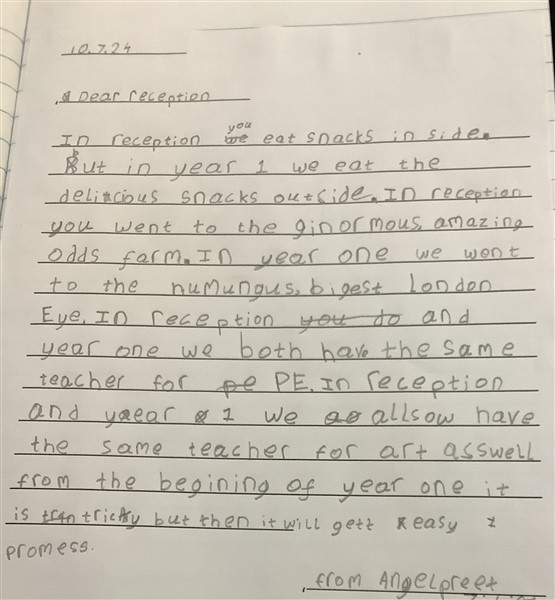 10.7.24
Dear reception
In reception you eat snacks in side.
But in year 1 we eat the
delitcious snacks outside. In reception
you went to the ginormous, amazing
Odds farm. In year one we went
to the humungus, bigest London
Eye. In reception you do and
year one we both have the same
teacher for pe PE. In reception
and year 1 we as allsow have
the same teacher for art asswell
from the begining of year one it
is tricky but then it will gett easy I
promess.
from Angelpreet